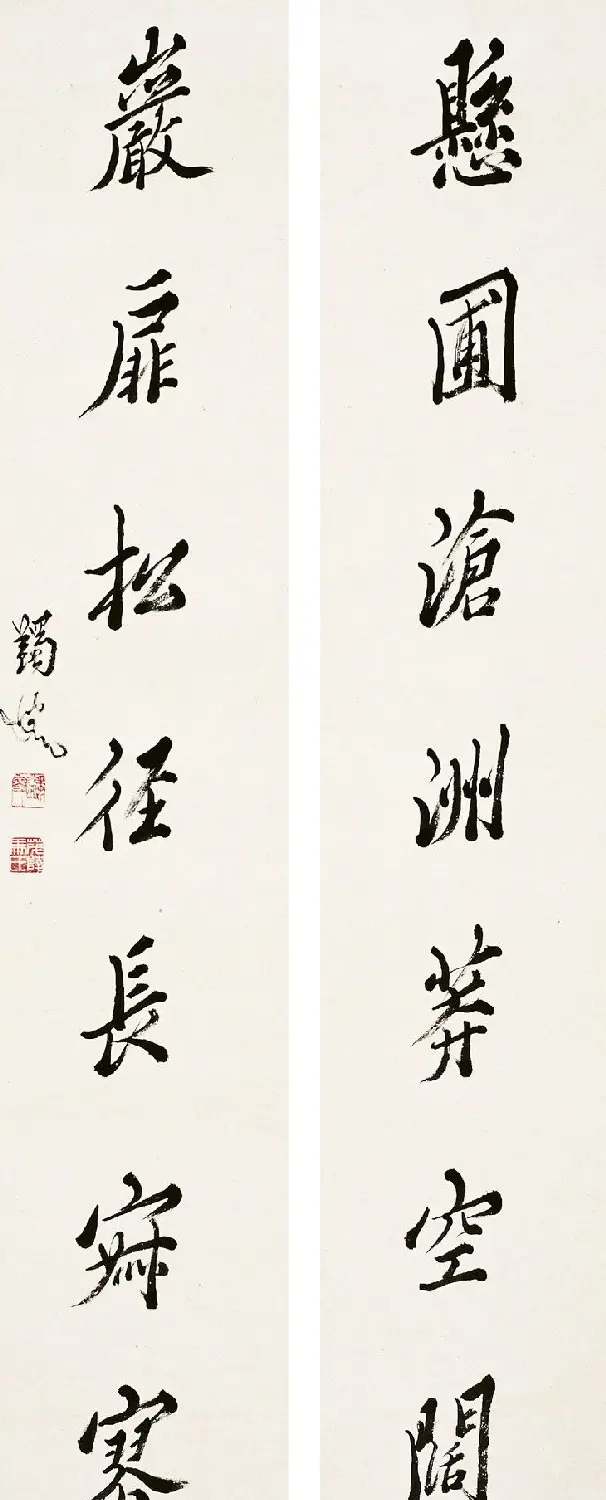 懸圃滄洲莽空闊
巖扉松径長寂寥
蠲叟